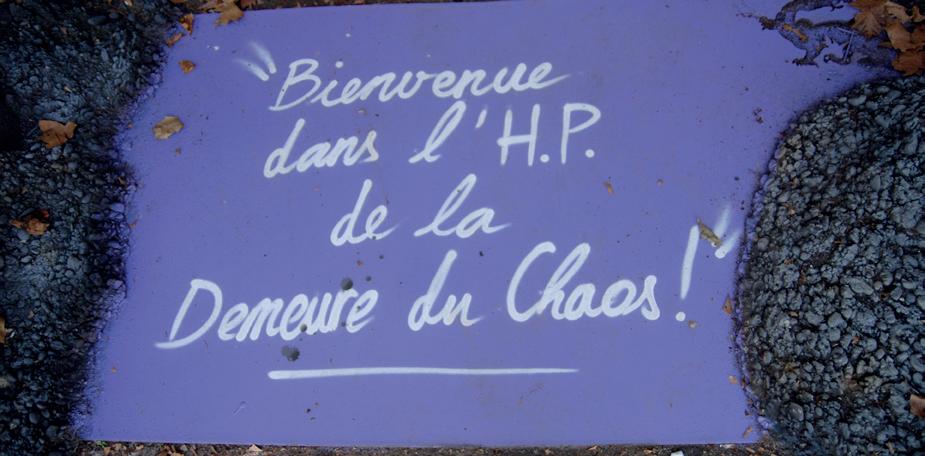 "Bienvenue
dans l'H.P.
de la
Demeure du Chaos!"